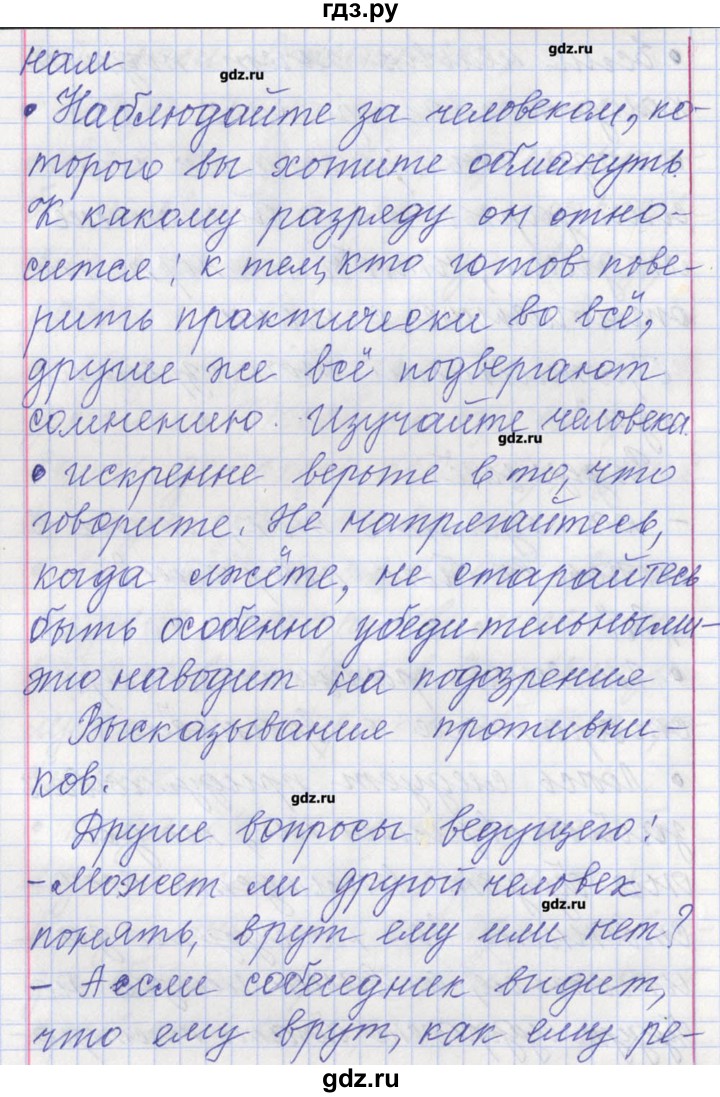 гдз.ру
нам
gdz.ru
gdz.ru
• Наблюдайте за человеком, ко-
торого вы хотите обмануть.
К какому разряду он отно-
сится: к тем, кто готов пове-
рить практически во всё,
другие же всё подвергают
сомнению. Изучайте человека.
gdz.ru
• искренне верьте в то, что
говорите. Не напрягайтесь,
когда лжёте, не старайтесь
быть особенно убедительными-
это наводит на подозрения
Высказывания противни-
ков.
gdz.ru
Другие вопросы ведущего:
- Может ли другой человек
gdz.ru
понять, врут ему или нет?
- А если собеседник видит,
что ему врут, как ему ре-
gdz.ru